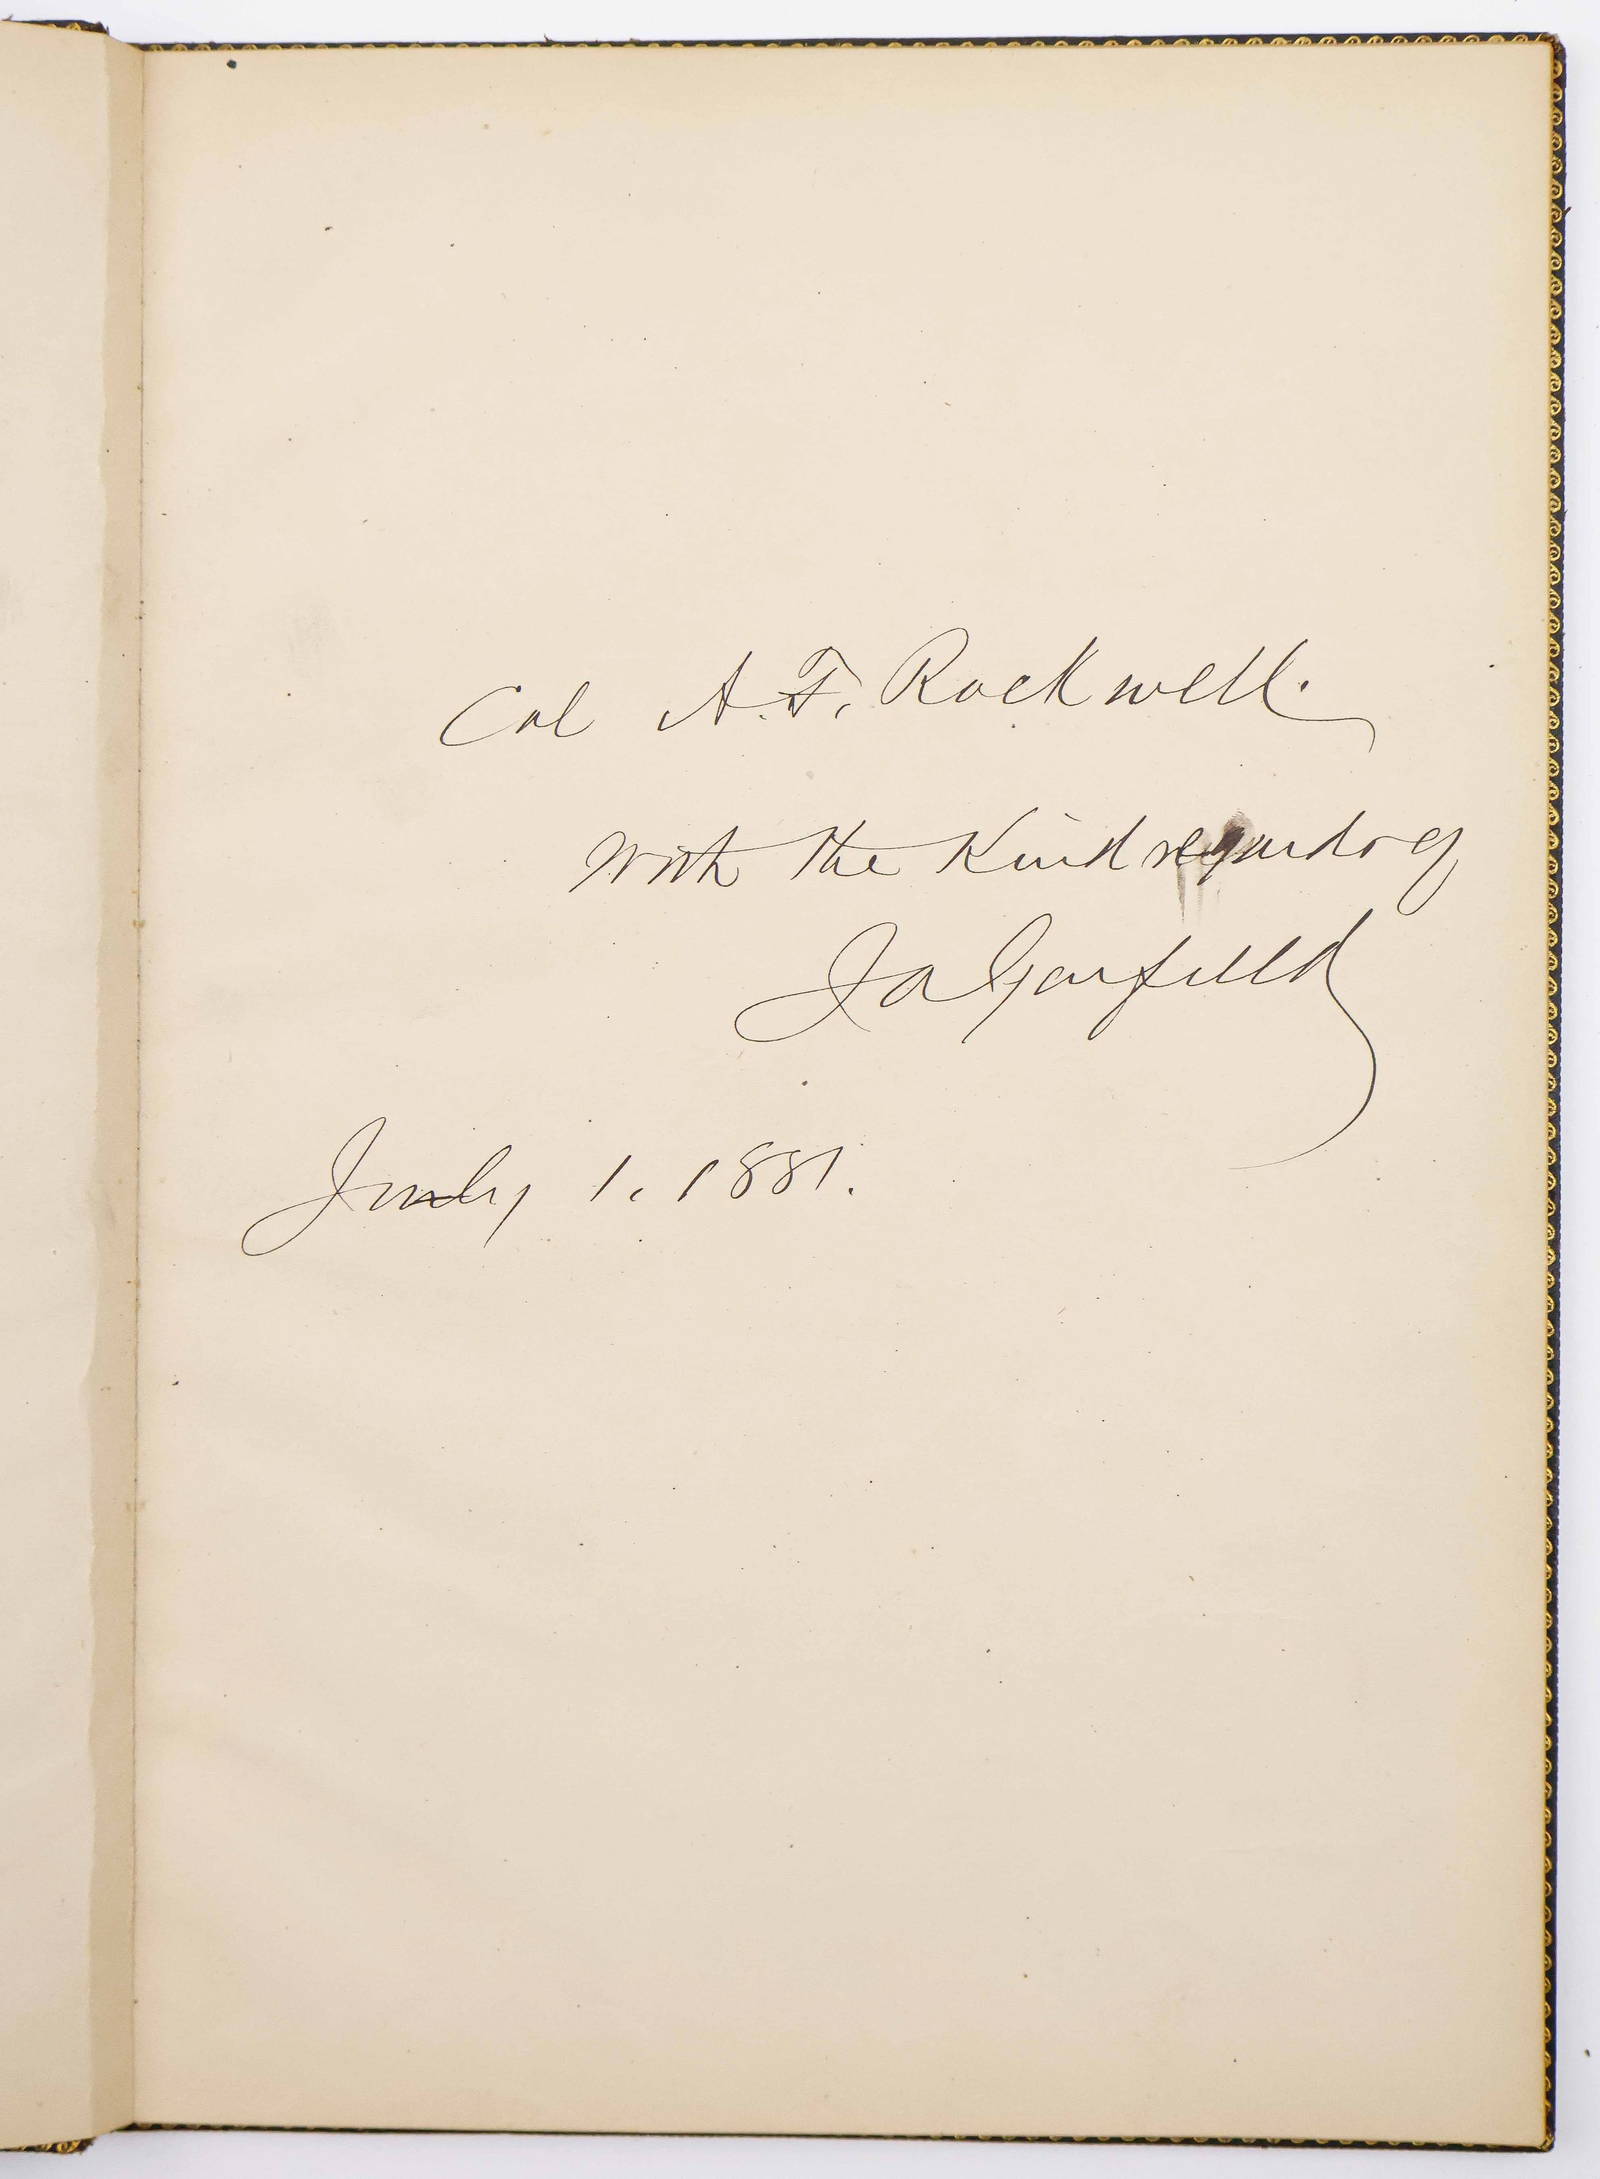 Col A. F. Rockwell.
With the Kind regards of
J A Garfield
July 1. 1881.